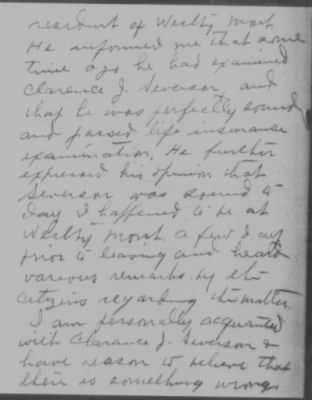 resident of Westby Mont
He informed me that some
time ago he had examined
Clarence J. Severson, and
that he was perfectly sound
and passed life insurance
examination. He further
expressed his opinion that
Severson was sound to
day. I happened to be at
Westby Mont. a few days
prior to leaving and heard
various remarks by the
citizens regarding the matter.
I am personally acquainted
with Clarence J. Severson &
have reason to believe that
there is something wrong